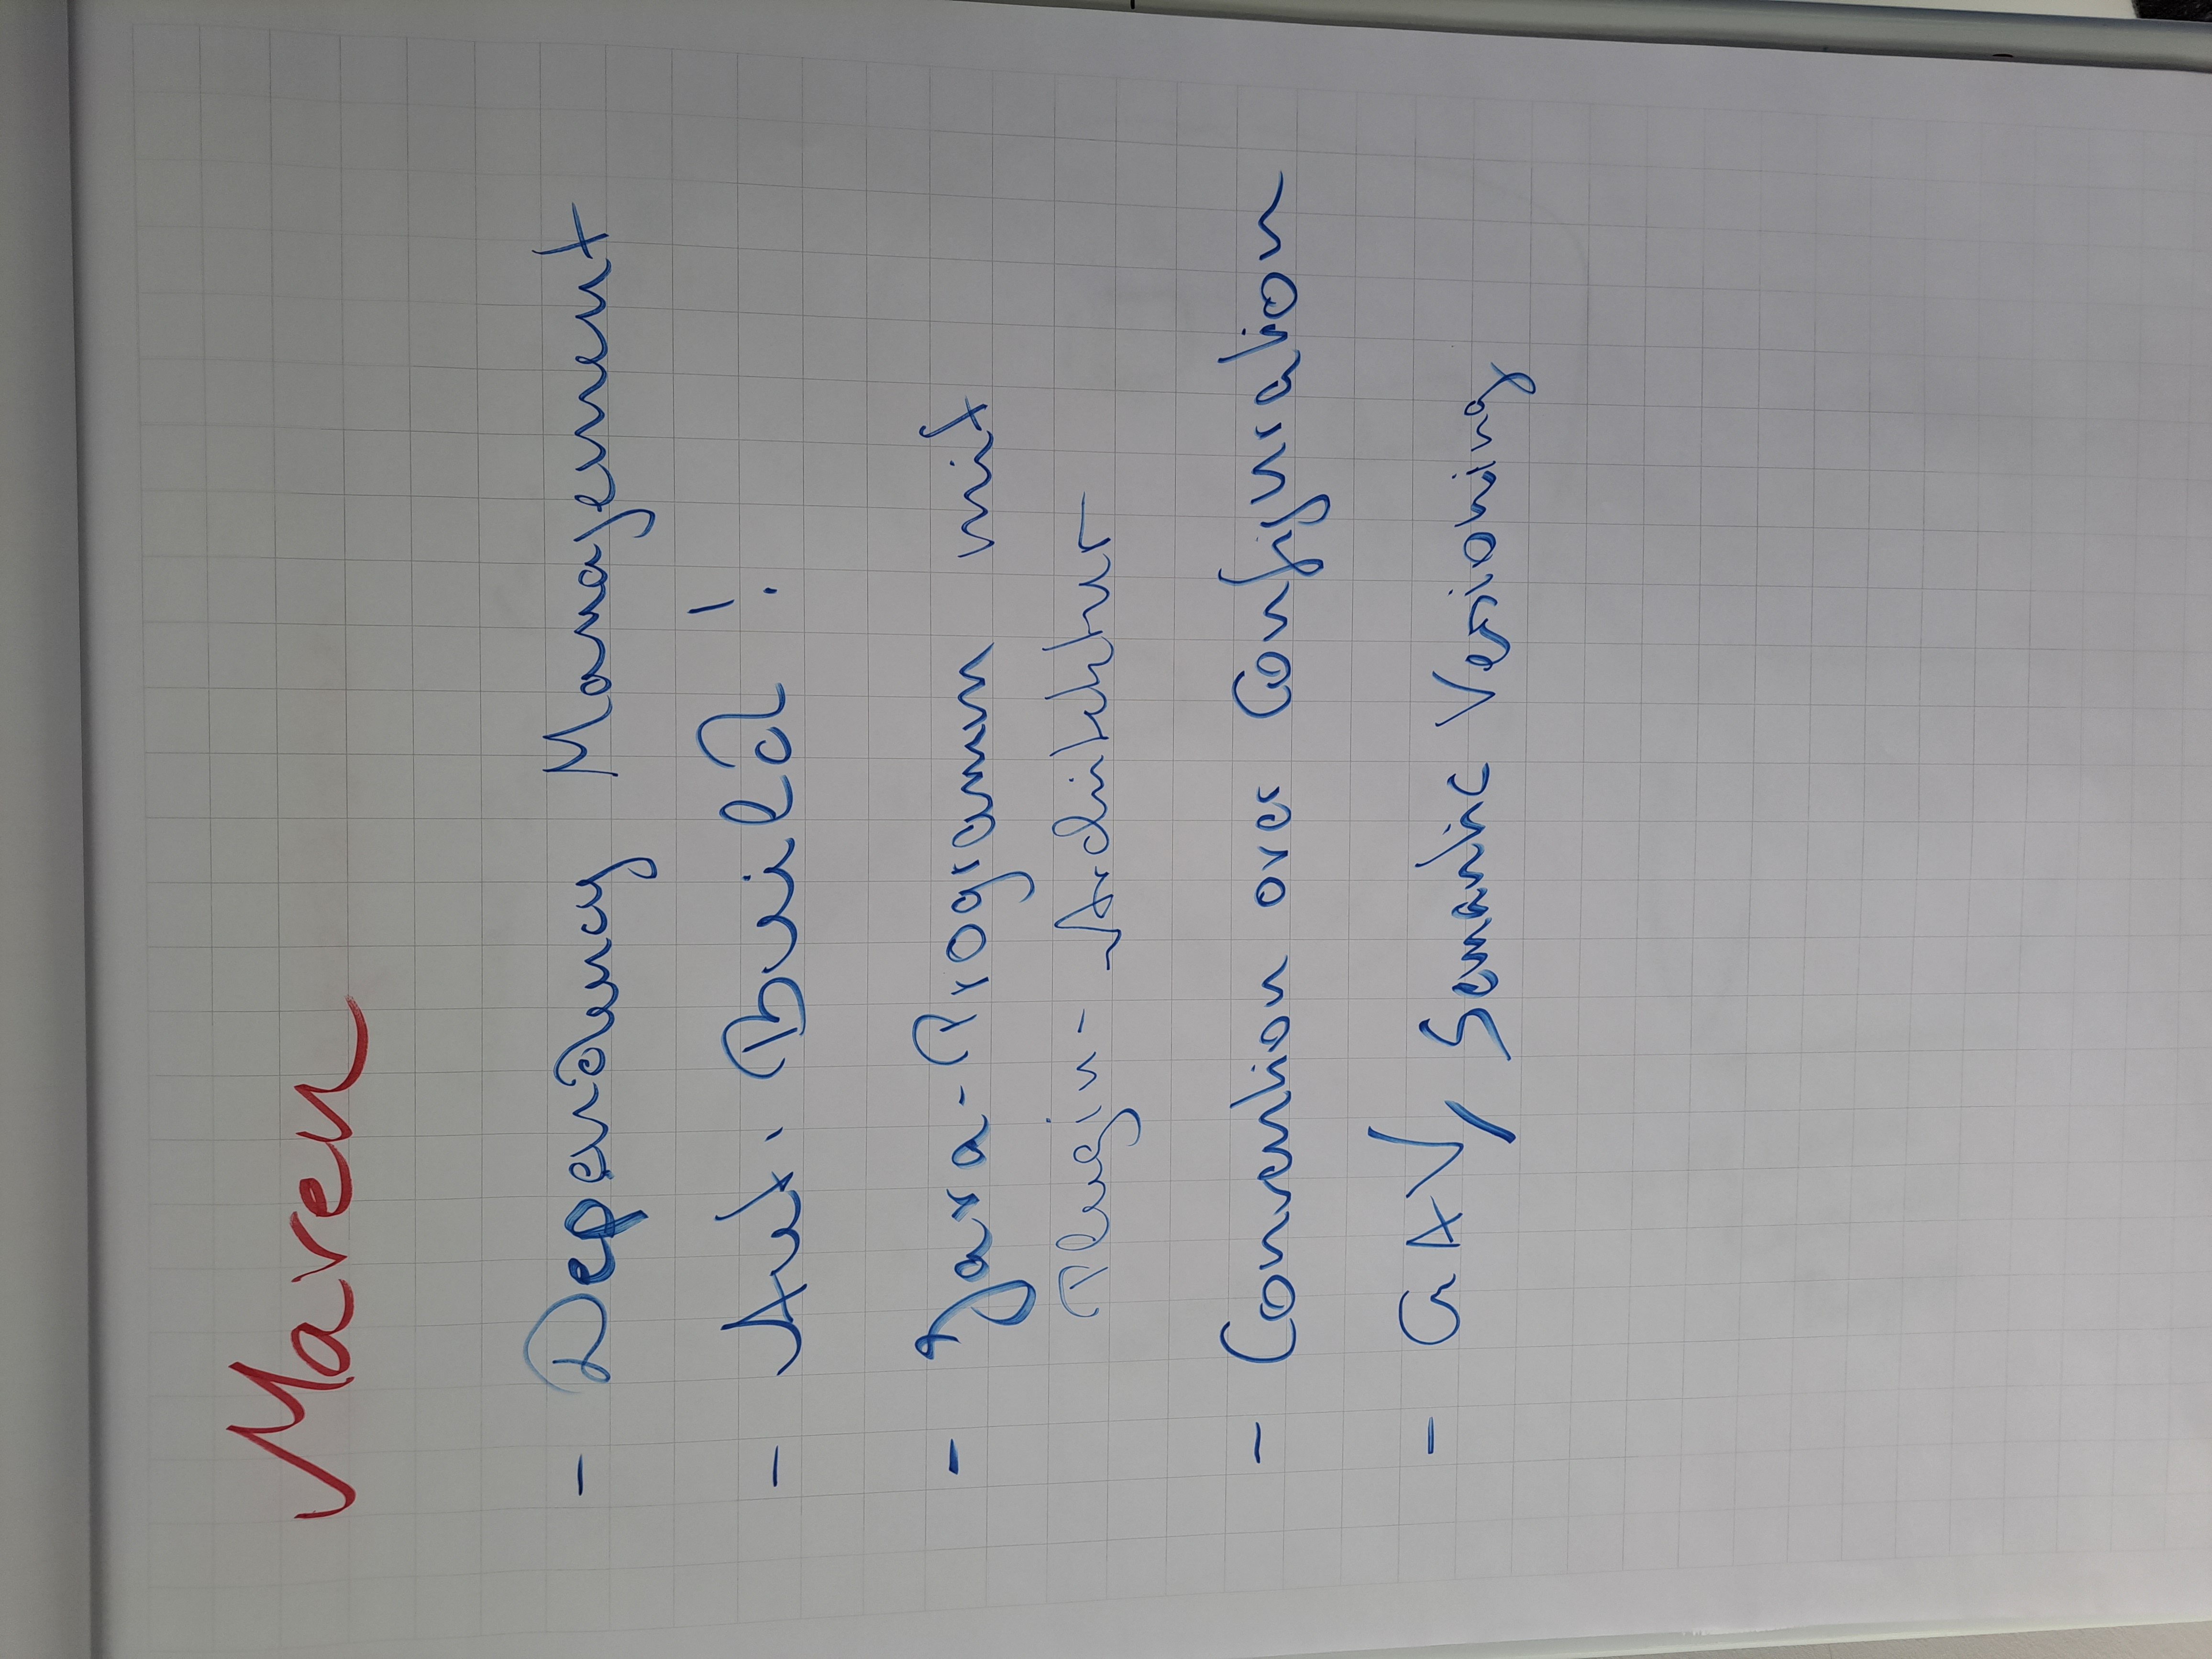 Maven
- Dependency Management
- Aut. Build !
- Java-Programm mit
Plugin-Architektur
- Convention over Configuration
- GAV, Semantic Versioning